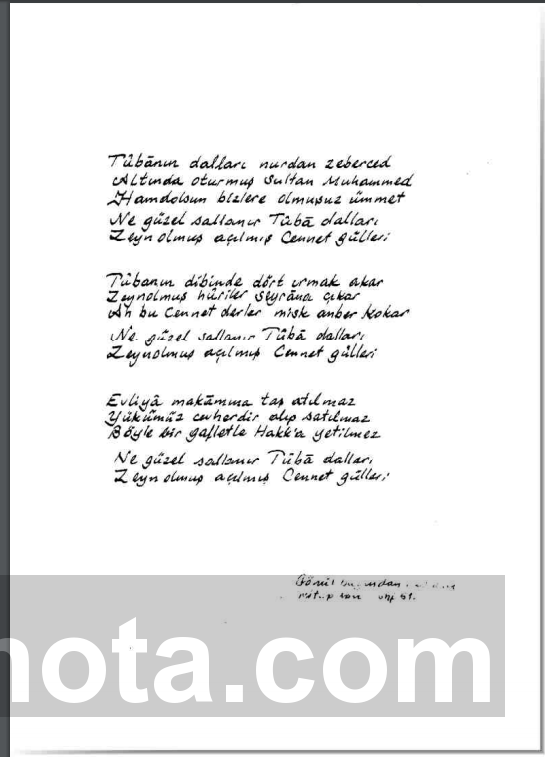 Tûbânın dalları nurdan zeberced
Altında oturmuş Sultan Muhammed
Hamdolsun bizlere olmuşuz ümmet
Ne güzel sallanır Tûbâ dalları
Zeyn olmuş açılmış Cennet gülleri
Tûbanın dibinde dört ırmak akar
Zeynolmuş hûriler seyrâna çıkar
An bu Cennet derler misk anber kokar
Ne güzel sallanır Tûbâ dalları
Zeynolmuş açılmış Cennet gülleri
Evliyâ makâmına taş atılmaz
Yükümüz cevherdir alıp satılmaz
Böyle bir gafletle Hakk'a yetilmez
Ne güzel sallanır Tûbâ dalları
Zeyn olmuş açılmış Cennet gülleri
nota.com